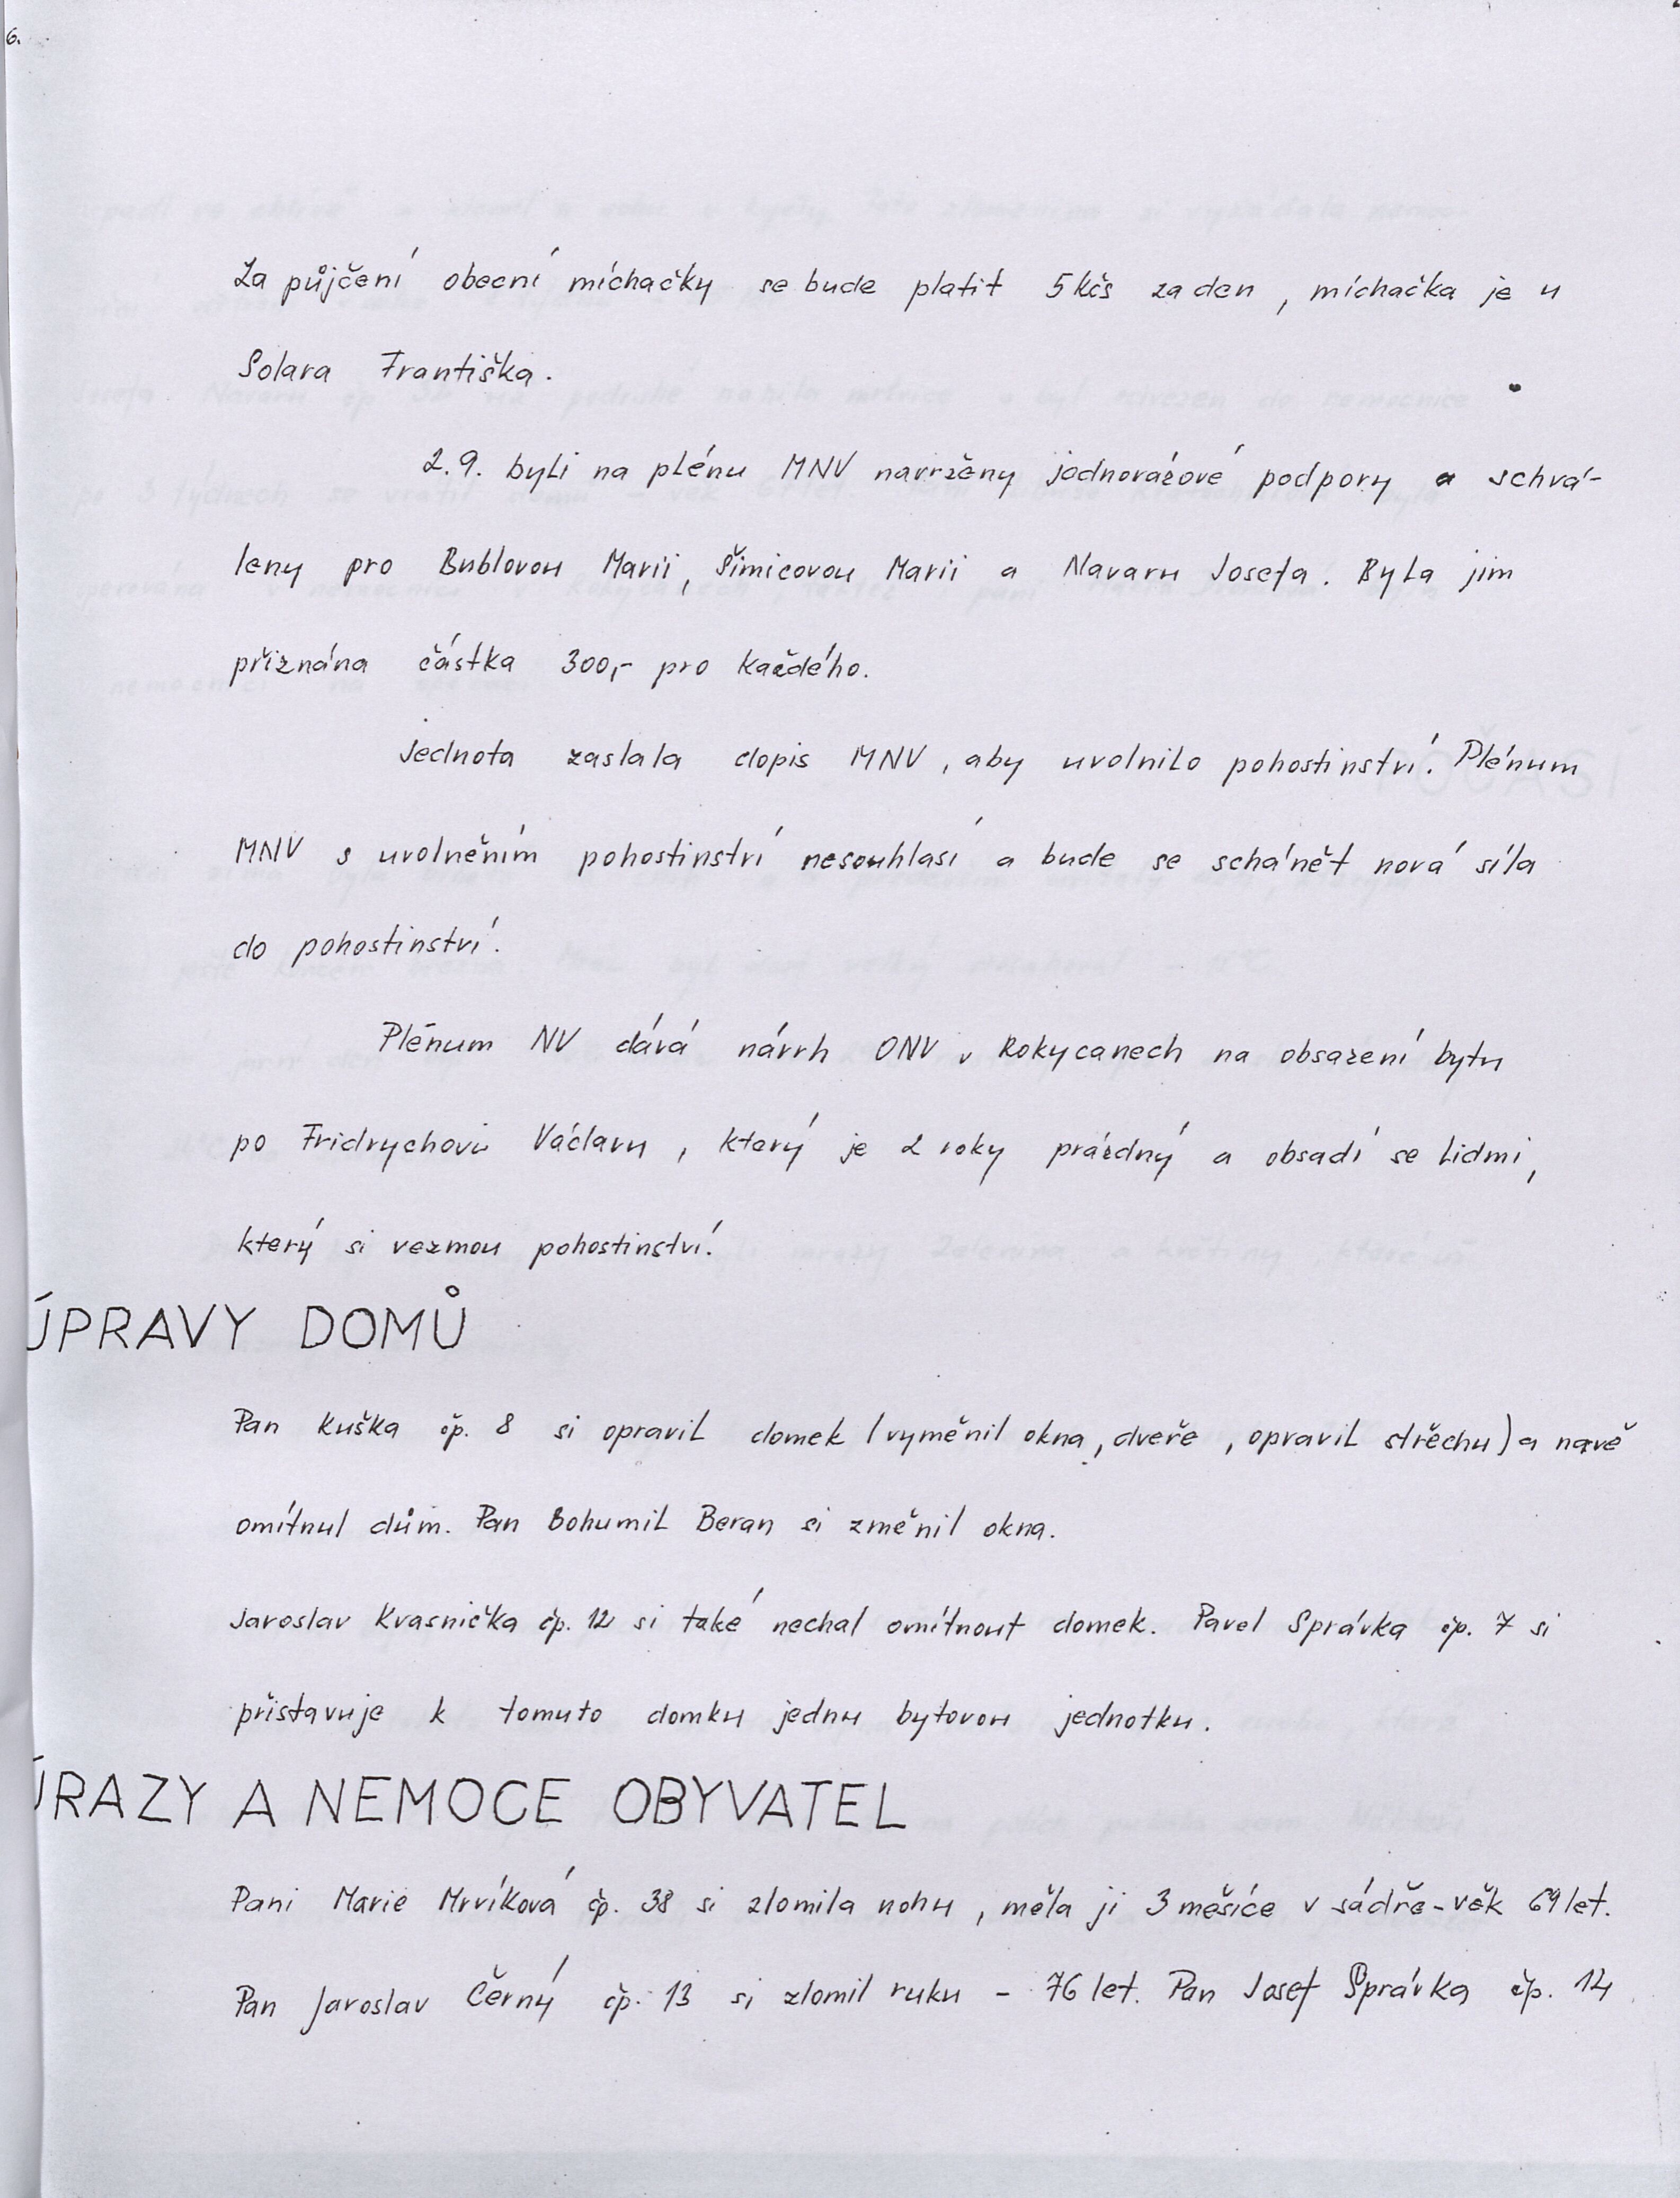 6.
Za půjčení obecní míchačky se bude platit 5 kčs za den, míchačka je u
Solara Františka.
2.9. byli na plénu MNV navrženy jednorázové podpory a schvá-
leny pro Bublovou Marii, Šimicovou Marii a Navaru Josefa. Byla jim
přiznána částka 300,- pro každého.
Jednota zaslala dopis MNV, aby uvolnilo pohostinství. Plénum
MNV s uvolněním pohostinství nesouhlasí a bude se schánět nová síla
do pohostinství.
Plénum NV dává návrh ONV v Rokycanech na obsazení bytu
po Fridrychovi Václavu, který je 2 roky prázdný a obsadí se lidmi,
který si vezmou pohostinství.
ÚPRAVY DOMŮ
Pan Kuška čp. 8 si opravil domek (vyměnil okna, dveře, opravil střechu) a nově
omítnul dům. Pan Bohumil Beran si změnil okna.
Jaroslav Kvasnička čp. 12 si také nechal omítnout domek. Pavel Správka čp. 7 si
přistavuje k tomuto domku jednu bytovou jednotku.
ÚRAZY A NEMOCE OBYVATEL
Paní Marie Mrvíková čp. 38 si zlomila nohu, měla ji 3 měsíce v sádře - věk 69 let.
Pan Jaroslav Černý čp. 13 si zlomil ruku - 76 let. Pan Josef Správka čp. 14